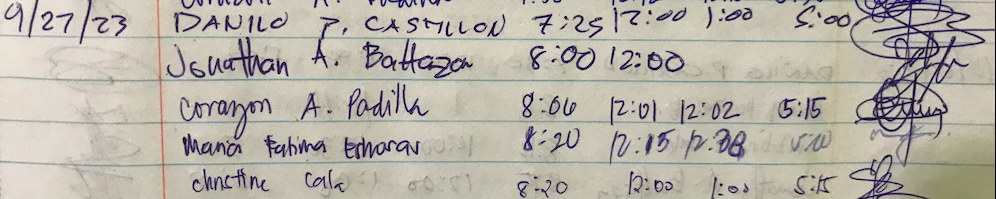 9/27/23 DANILO P. CASTILLON 7:25 12:00 1:00 5:00
Jonathan A. Baltazar 8:00 12:00
Corazon A. Padilla 8:06 12:01 12:02 5:15
Maria Fatima 8:20 12:15 5:00
Christine Cala 8:20 12:00 1:00 5:15